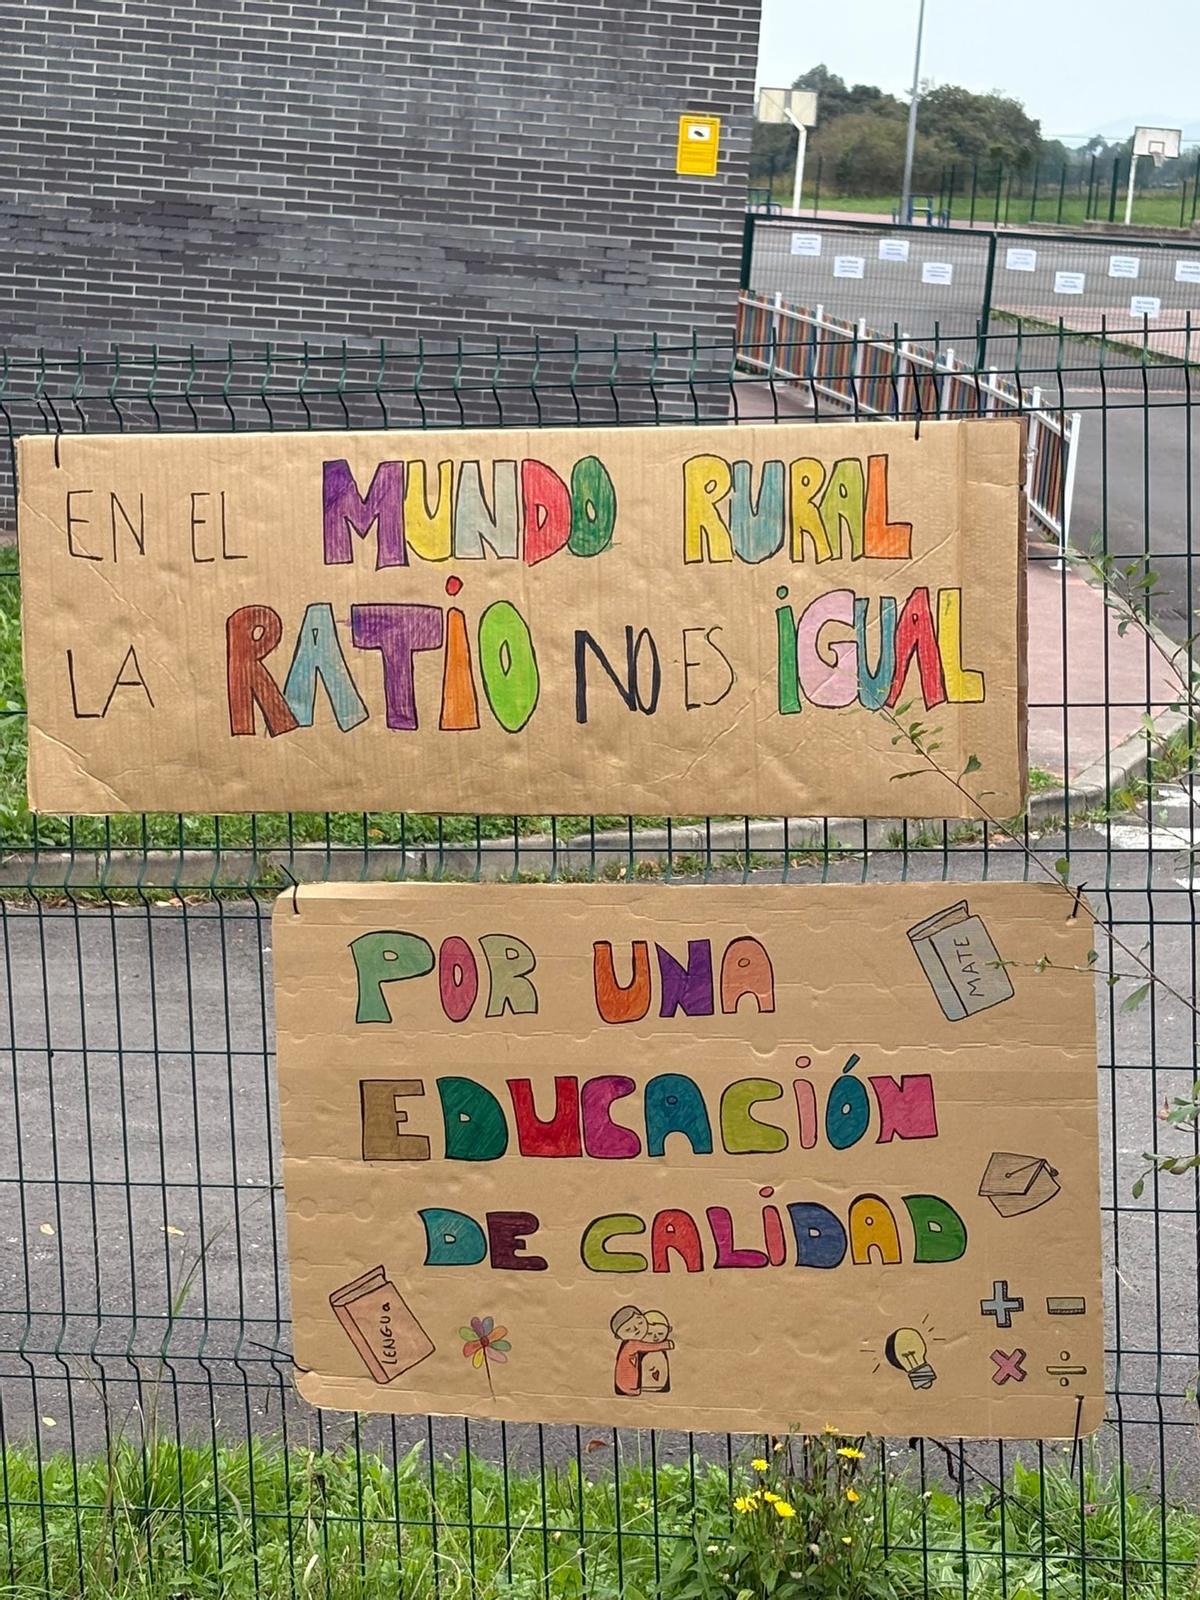 EN EL MUNDO RURAL
LA RATiO NO ES iGUAL
POR UNA
MATE
EDUCACiÓN
DE CALiDAD
LENGUa
+ -
× ÷